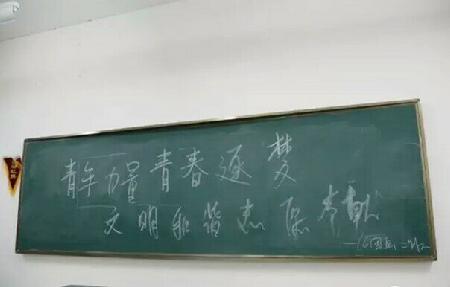 青年力量青春逐梦
文明和谐志愿奉献